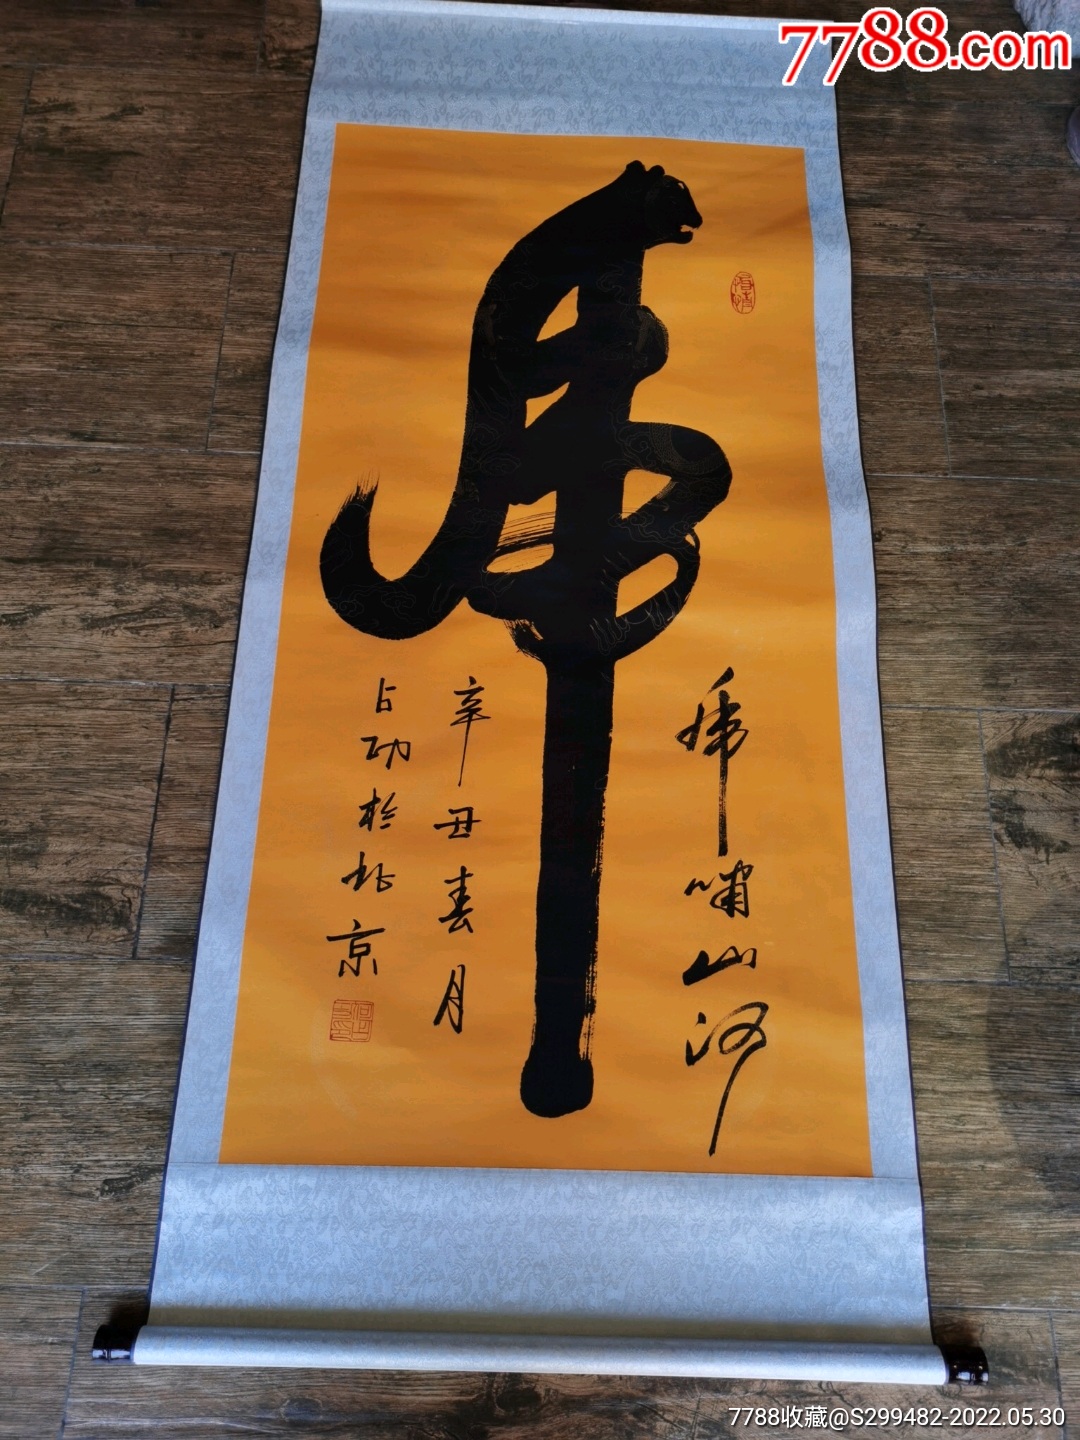 7788.com
虎
虎啸山河
辛丑春月
占功於北京
7788收藏@S299482-2022.05.30